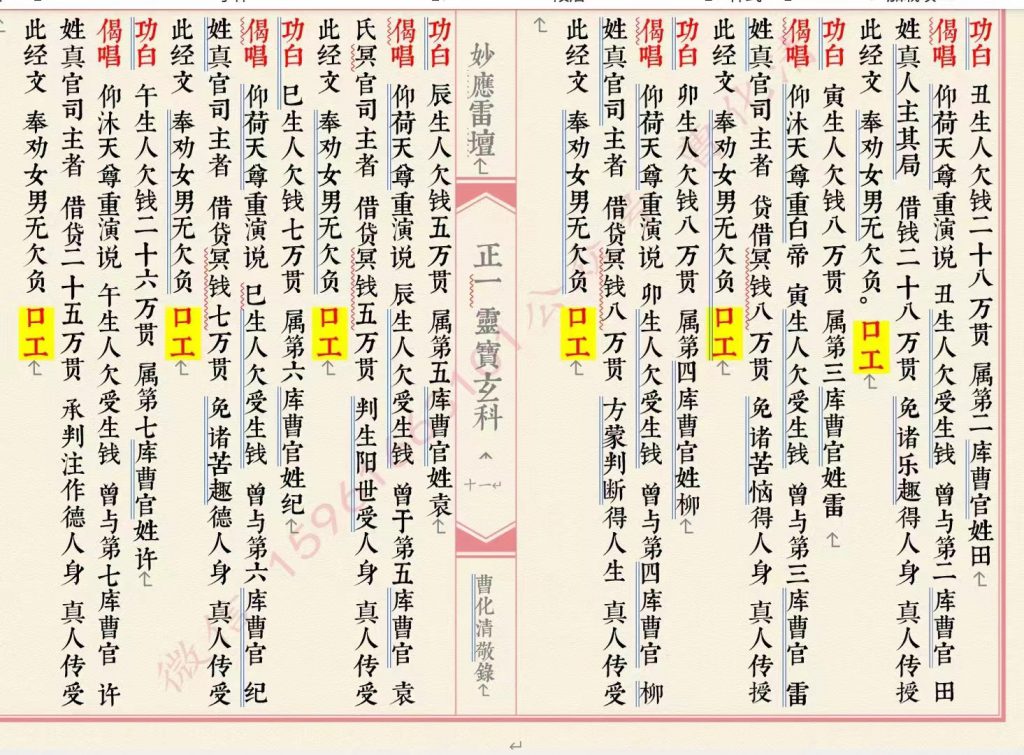 功白 丑生人欠钱二十八万贯 属第二库曹官姓田
偈唱 仰荷天尊重演说 丑生人欠受生钱 曾与第二库曹官 田
姓真人主其局 借钱二十八万贯 免诸乐趣得人身 真人传授
此经文 奉劝女男无欠负。 口工
功白 寅生人欠钱八万贯 属第三库曹官姓雷
偈唱 仰沐天尊重白帝 寅生人欠受生钱 曾与第三库曹官 雷
姓真官司主者 贷借冥钱八万贯 免诸苦恼得人身 真人传授
此经文 奉劝女男无欠负 口工
功白 卯生人欠钱八万贯 属第四库曹官姓柳
偈唱 仰荷天尊重演说 卯生人欠受生钱 曾与第四库曹官 柳
姓真官司主者 借贷冥钱八万贯 方蒙判断得人生 真人传受
此经文 奉劝女男无欠负 口工
妙應雷壇
正一 靈寶玄科
十一
曹化清敬錄
功白 辰生人欠钱五万贯 属第五库曹官姓袁
偈唱 仰荷天尊重演说 辰生人欠受生钱 曾于第五库曹官 袁
氏冥官司主者 借贷冥钱五万贯 判生阳世受人身 真人传受
此经文 奉劝女男无欠负 口工
功白 巳生人欠钱七万贯 属第六库曹官姓纪
偈唱 仰荷天尊重演说 巳生人欠受生钱 曾与第六库曹官 纪
姓真官司主者 借贷冥钱七万贯 免诸苦趣德人身 真人传受
此经文 奉劝女男无欠负 口工
功白 午生人欠钱二十六万贯 属第七库曹官姓许
偈唱 仰沐天尊重演说 午生人欠受生钱 曾与第七库曹官 许
姓真官司主者 借贷二十五万贯 承判注作德人身 真人传受
此经文 奉劝女男无欠负 口工